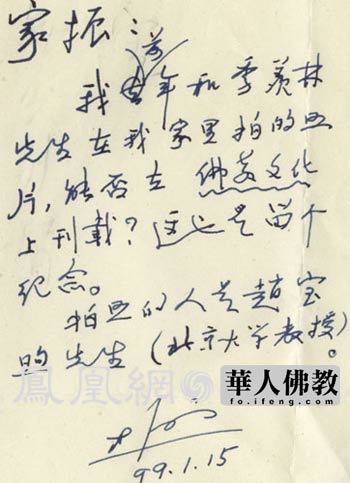 家振:
我前年和季羡林
先生在我家里拍的照
片,能否在佛教文化
上刊载?这也是留个
纪念。
拍照的人是趙宝
煦先生(北京大学教授)。
99.1.15
鳳凰網
華人佛教
fo.ifeng.com